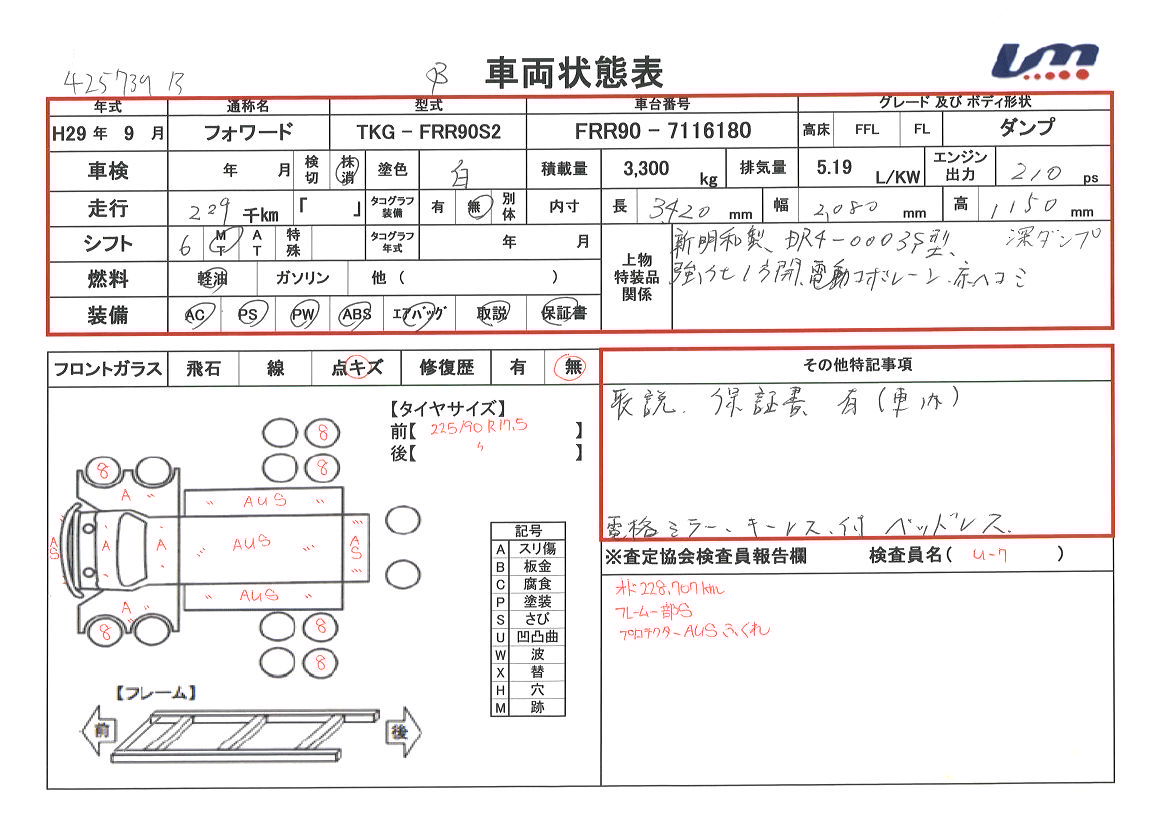 425739 B
車両状態表
年式 通称名 型式 車台番号 グレード 及び ボディ形状
H29 年 9 月 フォワード TKG - FRR90S2 FRR90 - 7116180 高床 FFL FL ダンプ
車検 年 月 検切 抹消 塗色 白 積載量 3,300 kg 排気量 5.19 L/KW エンジン出力 210 ps
走行 229 千km 「 」 タコグラフ装備 有 無 別体 内寸 長 3420 mm 幅 2,080 mm 高 1150 mm
シフト 6 MT AT 特殊 タコグラフ年式 年 月
上物特装品関係 新明和製、DR4-0003S型、深ダンプ
強化ヒノ開、電動コボレーン.床ヘコミ
燃料 軽油 ガソリン 他 ( )
装備 AC PS PW ABS エアバッグ 取説 保証書
フロントガラス 飛石 線 点キズ 修復歴 有 無
その他特記事項
取説.保証書 有(車内)
電格ミラー、キーレス付 ベッドレス.
【タイヤサイズ】
前【 225/90R17.5 】
後【 〃 】
8
8
8 8
A 〃
〃 AUS 〃
AS A A 〃 AUS 〃 〃 AS 〃
〃 AUS 〃
A 〃
8 8
8
記号
A スリ傷
B 板金
C 腐食
P 塗装
S さび
U 凹凸曲
W 波
X 替
H 穴
M 跡
※査定協会検査員報告欄 検査員名( U-7 )
オド228,707km
フレーム一部S
プロテクターAUSふくれ
【フレーム】
前 後